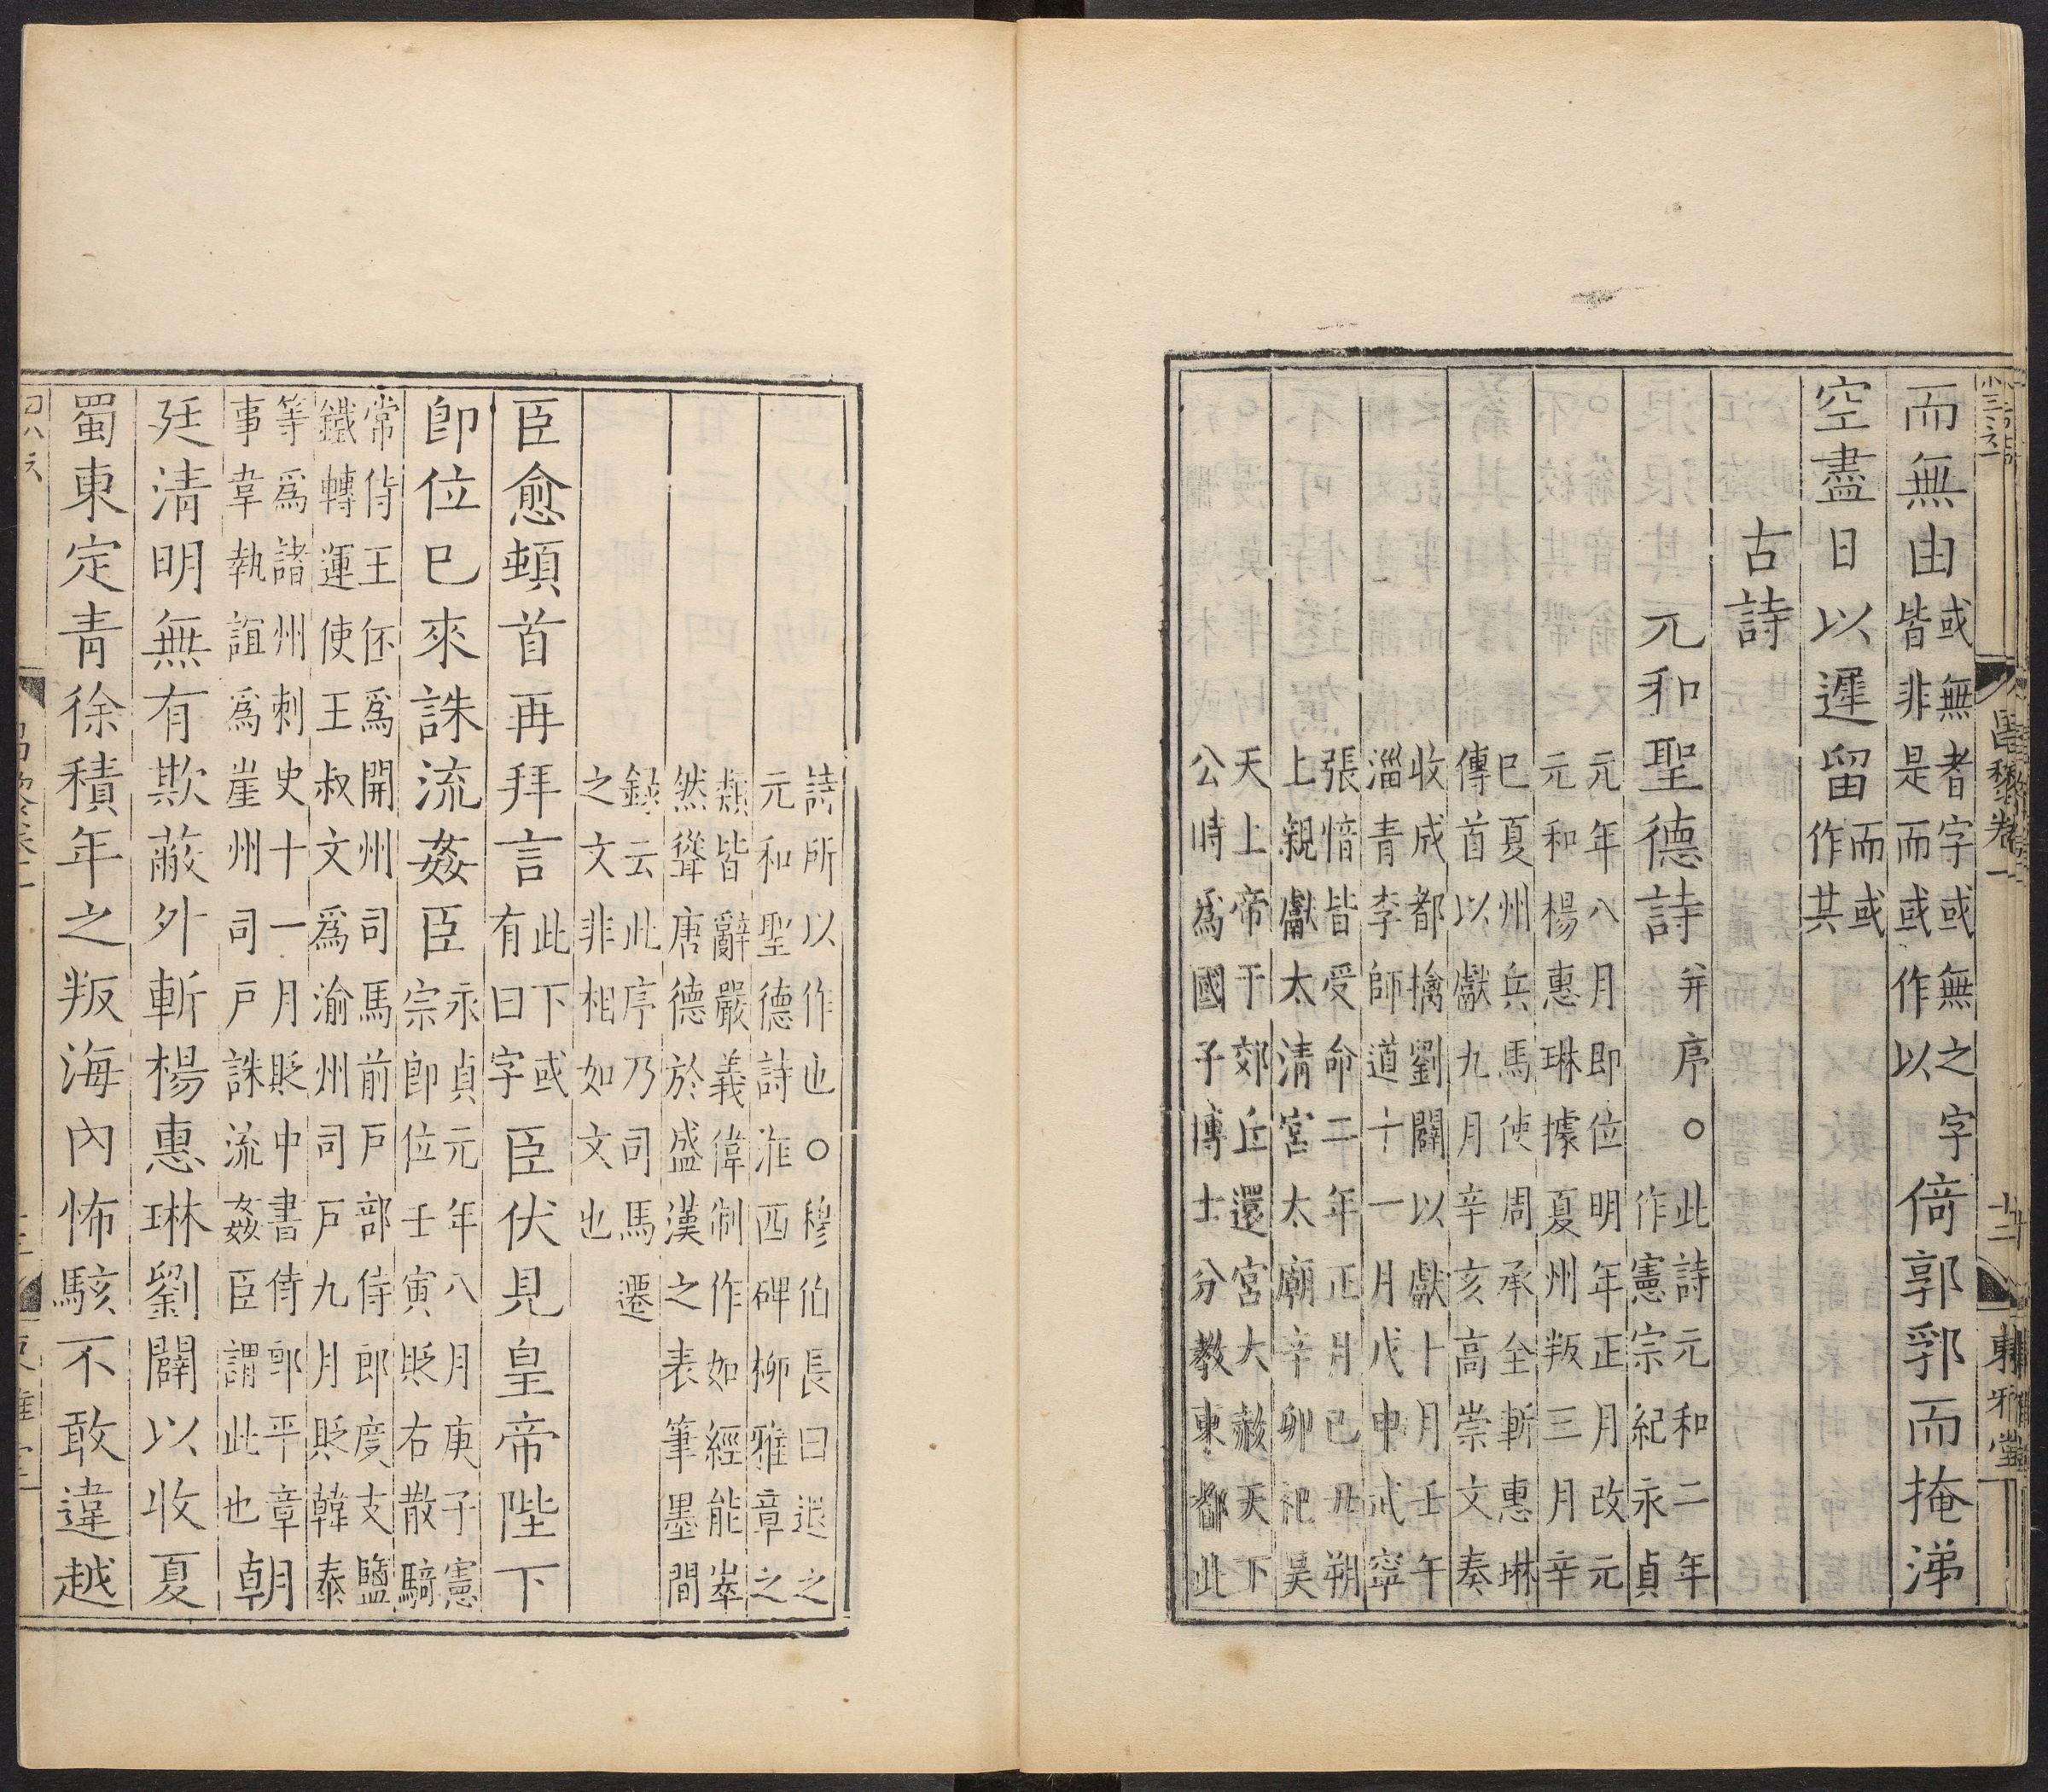 昌黎卷一
東雅堂
而無由
或無者字或無之字
皆非是而或作以
倚郭郛而掩涕
空盡日以遲留
而或
作其
古詩
元和聖德詩
并序○此詩元和二年
作憲宗紀永貞
元年八月即位明年正月改元
元和楊惠琳據夏州叛三月辛
巳夏州兵馬使周承全斬惠琳
傳首以獻九月辛亥高崇文奏
收成都擒劉闢以獻十月壬午
淄青李師道十一月戊申武寧
張愔皆受命二年正月己丑朔
上親獻太清宮太廟辛卯祀昊
天上帝于郊丘還宮大赦天下
公時為國子博士分教東都此
詩所以作也○穆伯長曰退之
元和聖德詩淮西碑柳雅章之
類皆辭嚴義偉制作如經能崒
然聳唐德於盛漢之表筆墨間
錄云此序乃司馬遷
之文非相如文也
臣愈頓首再拜言
此下或
有曰字
臣伏見皇帝陛下
即位已來誅流姦臣
永貞元年八月庚子憲
宗即位壬寅貶右散騎
常侍王伾爲開州司馬前戶部侍郎度支鹽
鐵轉運使王叔文爲渝州司戶九月貶韓泰
等爲諸州刺史十一月貶中書侍郎平章
事韋執誼爲崖州司戶誅流姦臣謂此也
朝
廷清明無有欺蔽外斬楊惠琳劉闢以收夏
蜀東定青徐積年之叛海內怖駭不敢違越